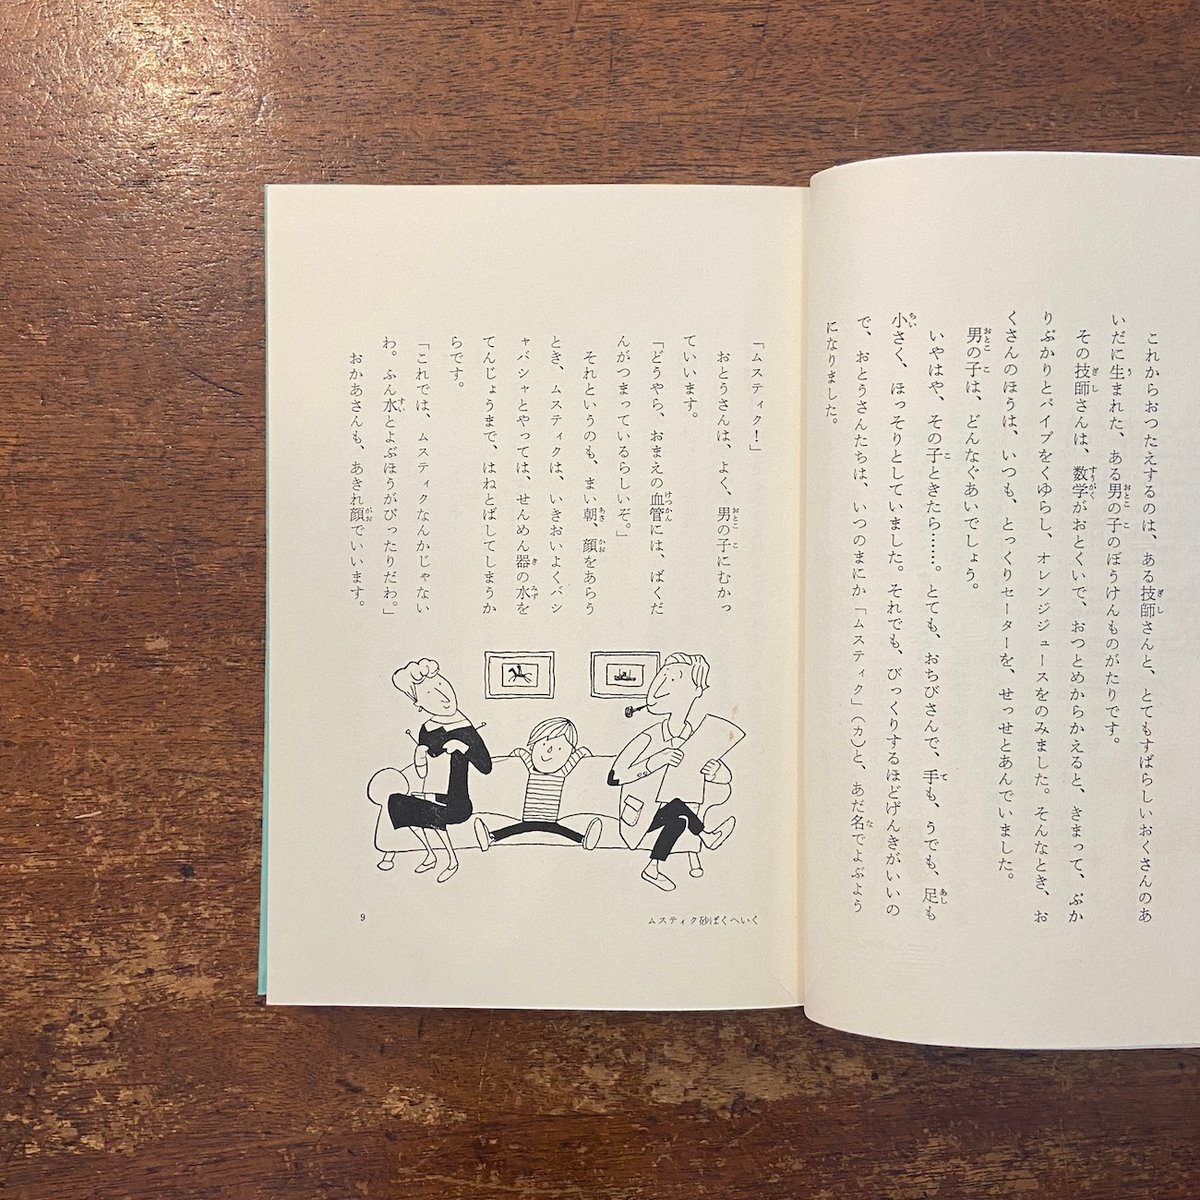 これからおつたえするのは、ある技師さんと、とてもすばらしいおくさんのあ
いだに生まれた、ある男の子のぼうけんものがたりです。
その技師さんは、数学がおとくいで、おつとめからかえると、きまって、ぷか
りぷかりとパイプをくゆらし、オレンジジュースをのみました。そんなとき、お
くさんのほうは、いつも、とっくりセーターを、せっせとあんでいました。
男の子は、どんなぐあいでしょう。
いやはや、その子ときたら……。とても、おちびさんで、手も、うでも、足も
小さく、ほっそりとしていました。それでも、びっくりするほどげんきがいいの
で、おとうさんたちは、いつのまにか「ムスティク」（カ）と、あだ名でよぶよう
になりました。
「ムスティク！」
おとうさんは、よく、男の子にむかっ
ていいます。
「どうやら、おまえの血管には、ばくだ
んがつまっているらしいぞ。」
それというのも、まい朝、顔をあらう
とき、ムスティクは、いきおいよくバシ
ャバシャとやっては、せんめん器の水を
てんじょうまで、はねとばしてしまうか
らです。
「これでは、ムスティクなんかじゃない
わ。ふん水とよぶほうがぴったりだわ。」
おかあさんも、あきれ顔でいいます。
ムスティク砂ばくへいく
9